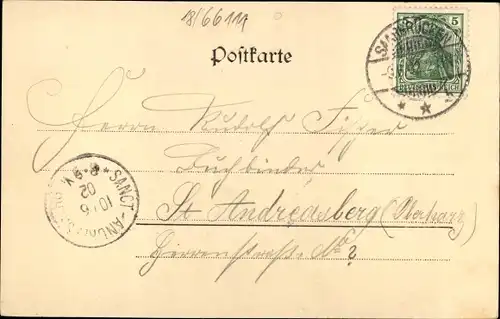 18/6611
Postkarte
SAARBRÜCKEN
5
DEUTSCHES REICH
Herrn Rudolf Fischer
Buchbinder
St. Andreasberg (Oberharz)
No 2
SANCT-ANDREASBERG
10 6
02
8-9 V.